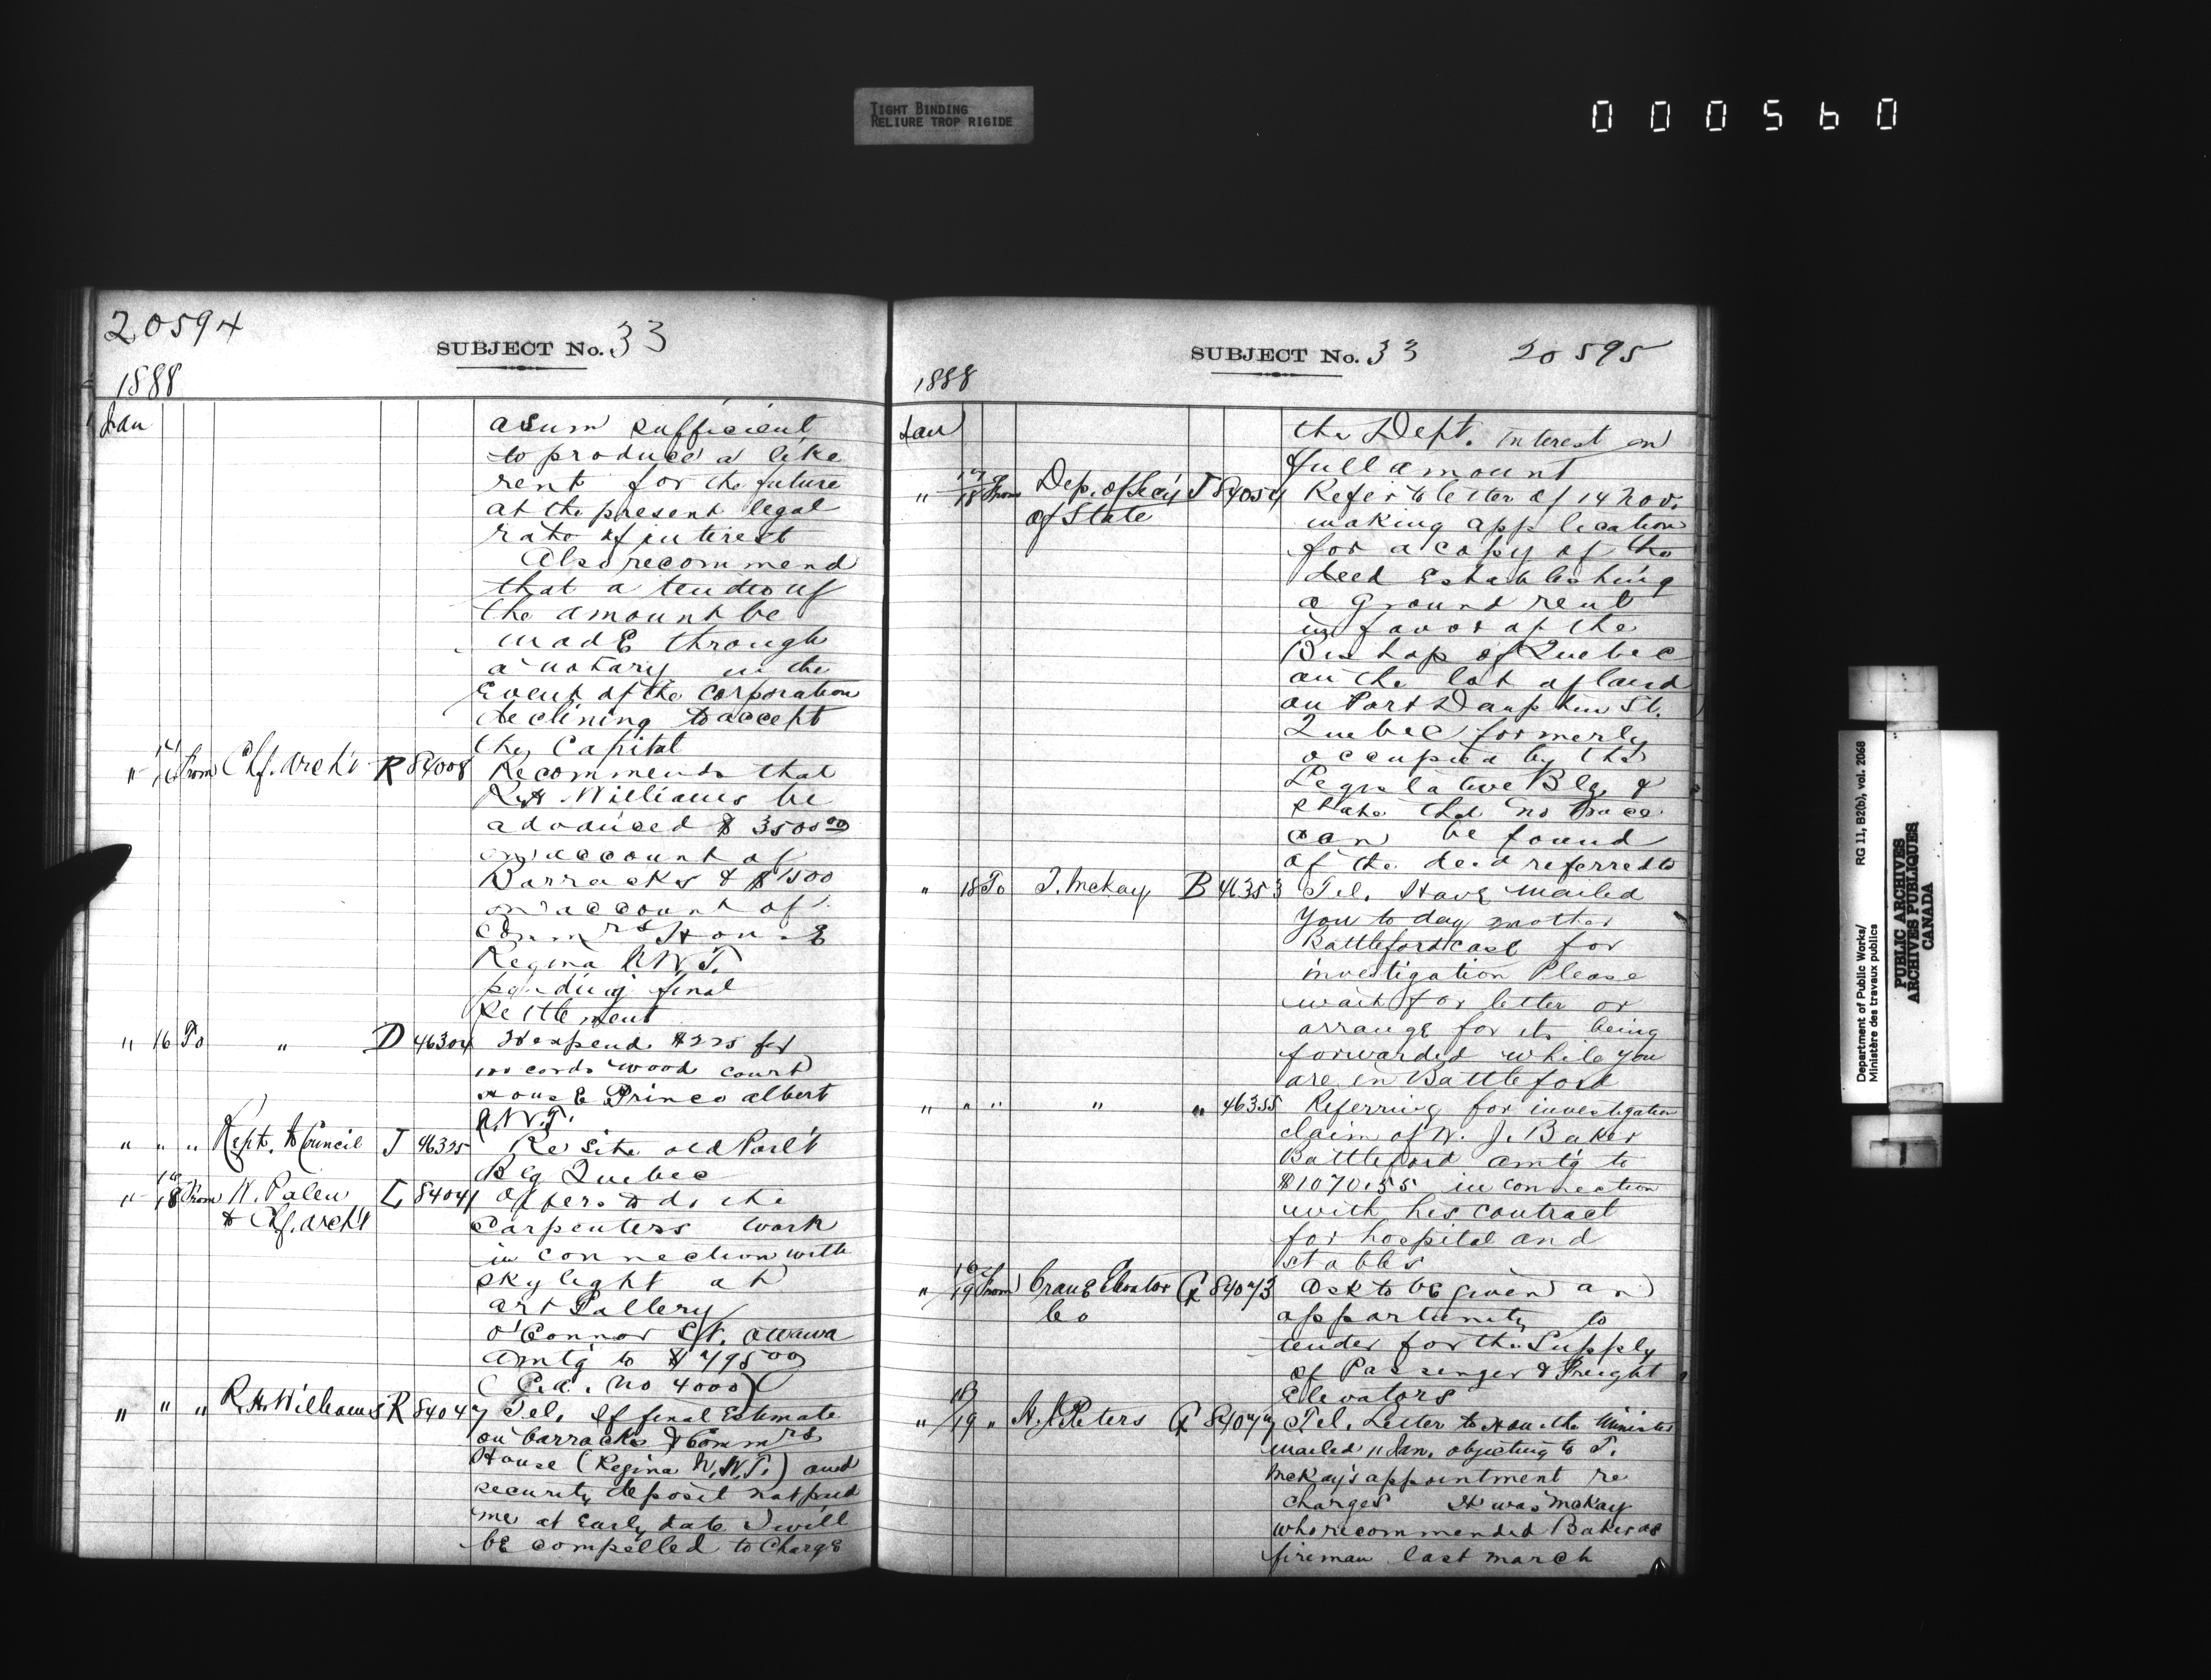 TIGHT BINDING
RELIURE TROP RIGIDE
000560
20594
SUBJECT No. 33
1888
Jan
a sum sufficient
to produce a like
rent for the future
at the present legal
rate of interest
Also recommend
that a tender of
the amount be
made through
a notary in the
Event of the corporation
declining to accept
the Capital
" 16 From Chf. Arch't R 84008 Recommends that
R. H. Williams be
advanced $3500.00
on account of
Barracks & $1500
on account of
Comm'rs House
Regina N.W.T.
pending final
settlement
" 16 To " D 46304 To expend $225 for
100 cords wood court
House Prince albert
N.W.T.
" " " Rept. to Council J 46325 Re site old Parl't
Blg Quebec
" 18 From W. Palen L 84041 Offers to do the
& Chf. Arch't
carpenters work
in connection with
skylight at
art Gallery
O'Connor St. Ottawa
amtg to $795.00
(P.a. No 4000)
" " " R. H. Williams R 84047 Tel. If final Estimate
on barracks & Comm'rs
House (Regina N.W.T.) and
security deposit not paid
me at Early date I will
be compelled to Charge
SUBJECT No. 33 20595
1888
Jan
the Dept. interest on
full amount
" 17/18 From Dep. of Sec'y J 84054 Refer to letter of 14 Nov.
of State
making application
for a copy of the
deed Establishing
a Ground rent
in favor of the
Bishop of Quebec
on the lot of land
on Port Dauphin St.
Quebec formerly
occupied by the
Legislative Blg. &
state that no trace
can be found
of the deed referred to
" 18 To T. McKay B 46353 Tel. Have mailed
you to day another
Battleford case for
investigation Please
wait for letter or
arrange for its being
forwarded while you
are in Battleford
" " " " " 46355 Referring for investigation
claim of W. J. Baker
Battleford amt'g to
$1070.55 in connection
with his contract
for hospital and
stables
" 19 From Crane Elevator G 84073 Ask to be given an
Co
opportunity to
tender for the Supply
of Passenger & Freight
Elevators
" 18/19 " H. J. Peters G 84077 Tel. Letter to Hon. the Minister
mailed 11 Jan. objecting to T.
McKay's appointment re
charges It was McKay
who recommended Baker as
fireman last march
Department of Public Works/ RG 11, B2(b), vol. 2068
Ministère des travaux publics
PUBLIC ARCHIVES
ARCHIVES PUBLIQUES
CANADA